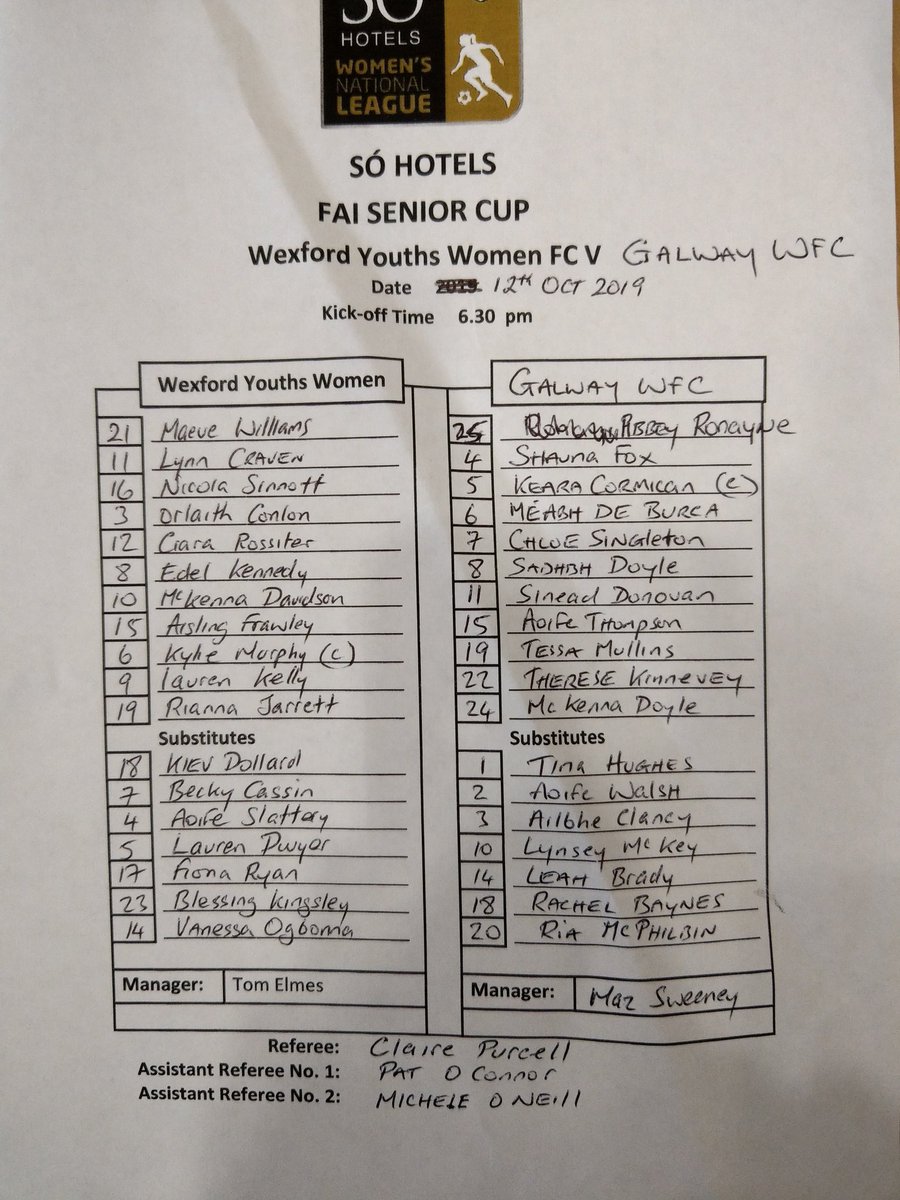 SÓ
HOTELS
WOMEN'S
NATIONAL
LEAGUE
SÓ HOTELS
FAI SENIOR CUP
Wexford Youths Women FC V GALWAY WFC
Date 12TH OCT 2019
Kick-off Time 6.30 pm
Wexford Youths Women
21 Maeve Williams
11 Lynn CRAVEN
16 Nicola Sinnott
3 Orlaith Conlon
12 Ciara Rossiter
8 Edel Kennedy
10 McKenna Davidson
15 Aisling Frawley
6 Kylie Murphy (C)
9 Lauren Kelly
19 Rianna Jarrett
Substitutes
18 KIEV Dollard
7 Becky Cassin
4 Aoife Slattery
5 Lauren Dwyer
17 Fiona Ryan
23 Blessing Kingsley
14 Vanessa Ogbonna
Manager: Tom Elmes
GALWAY WFC
25 ABBEY Ronayne
4 SHAUNA FOX
5 KEARA CORMICAN (C)
6 MÉABH DE BURCA
7 CHLOE SINGLETON
8 SADHBH Doyle
11 Sinead Donovan
15 Aoife Thompson
19 TESSA Mullins
22 THERESE Kinnevey
24 McKenna Doyle
Substitutes
1 Tina HUGHES
2 Aoife WALSH
3 Ailbhe Clancy
10 Lynsey McKey
14 LEAH Brady
18 RACHEL BAYNES
20 Ria McPHILBIN
Manager: Maz Sweeney
Referee: Claire Purcell
Assistant Referee No. 1: PAT O Connor
Assistant Referee No. 2: MICHELE O NEill